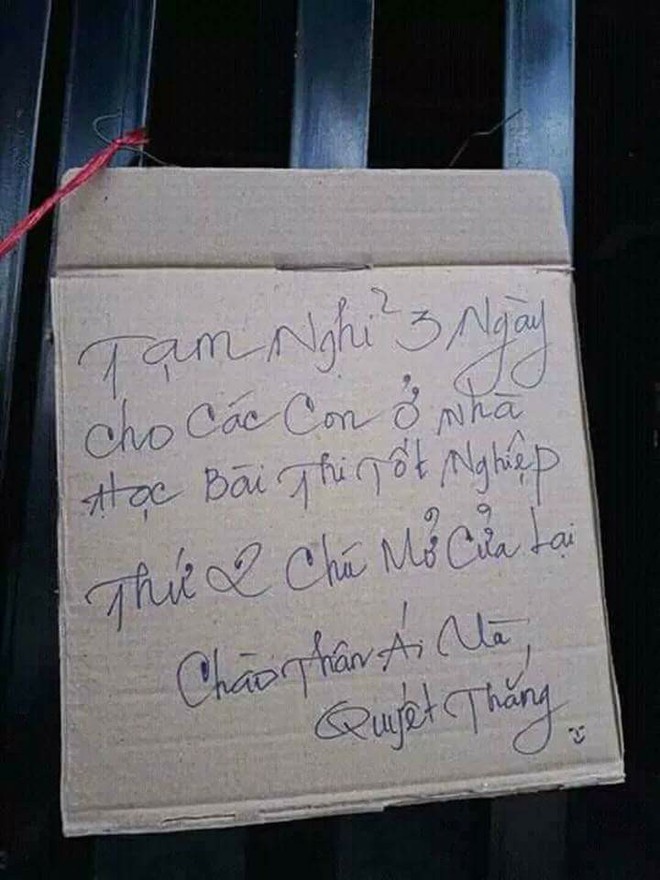 Tạm Nghỉ 3 Ngày
cho các con ở nhà
Học Bài Thi Tốt Nghiệp
Thứ 2 Chú Mở Cửa Lại
Chào Thân Ái Và,
Quyết Thắng